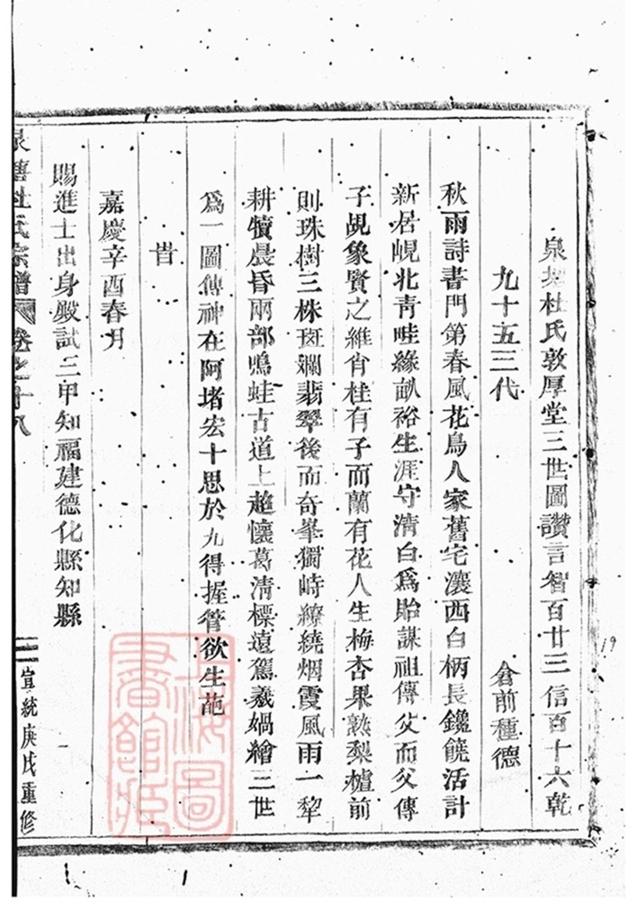 泉塘杜氏敦厚堂三世圖讚言智百廿三信百十六乾
九十五三代
倉前種德
秋雨詩書門第春風花鳥人家舊宅瀼西白柄長鑱饒活計
新居峴北青畦緣畝裕生涯守清白爲貽謀祖傳父而父傳
子覘象賢之維肖桂有子而蘭有花人生梅杏果熟梨樝前
則珠樹三株斑斕翡翠後而奇峯獨峙繚繞烟霞風雨一犂
耕犢晨昏兩部鳴蛙古道上趨懷葛清標遠駕羲媧繪三世
爲一圖傳神在阿堵宏十思於九得握管欲生葩
昔
嘉慶辛酉春月
賜進士出身殿試三甲知福建德化縣知縣
杜氏宗譜 卷之十八
二
宣統庚戌重修
圖書館藏
19